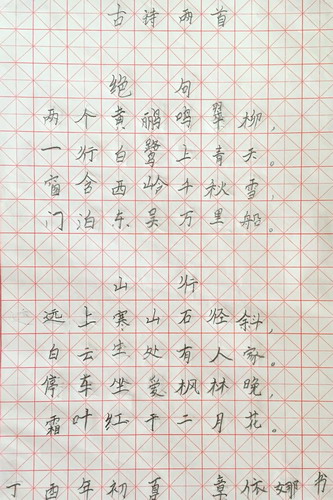 古诗两首
绝句
两个黄鹂鸣翠柳，
一行白鹭上青天。
窗含西岭千秋雪，
门泊东吴万里船。
山行
远上寒山石径斜，
白云生处有人家。
停车坐爱枫林晚，
霜叶红于二月花。
丁酉年初夏 章依娜书